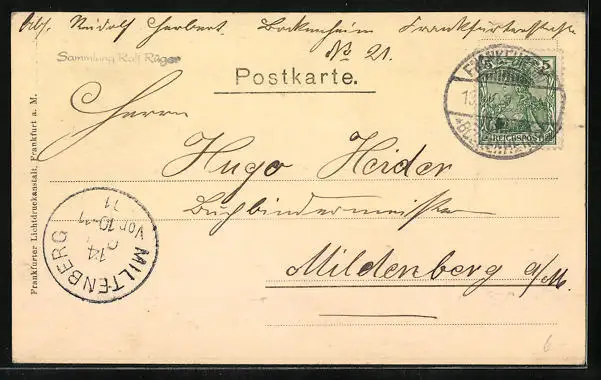 Abs. Rudolf Herbert Bockenheim Frankfurterstraße
No 21.
Sammlung Rolf Rüger
Postkarte.
Herrn
Hugo Heider
Buchbindermeister
Mildenberg a/M.
5
REICHSPOST
MILTENBERG
14
Vor. 10-11
11
Frankfurter Lichtdruckanstalt, Frankfurt a. M.
6